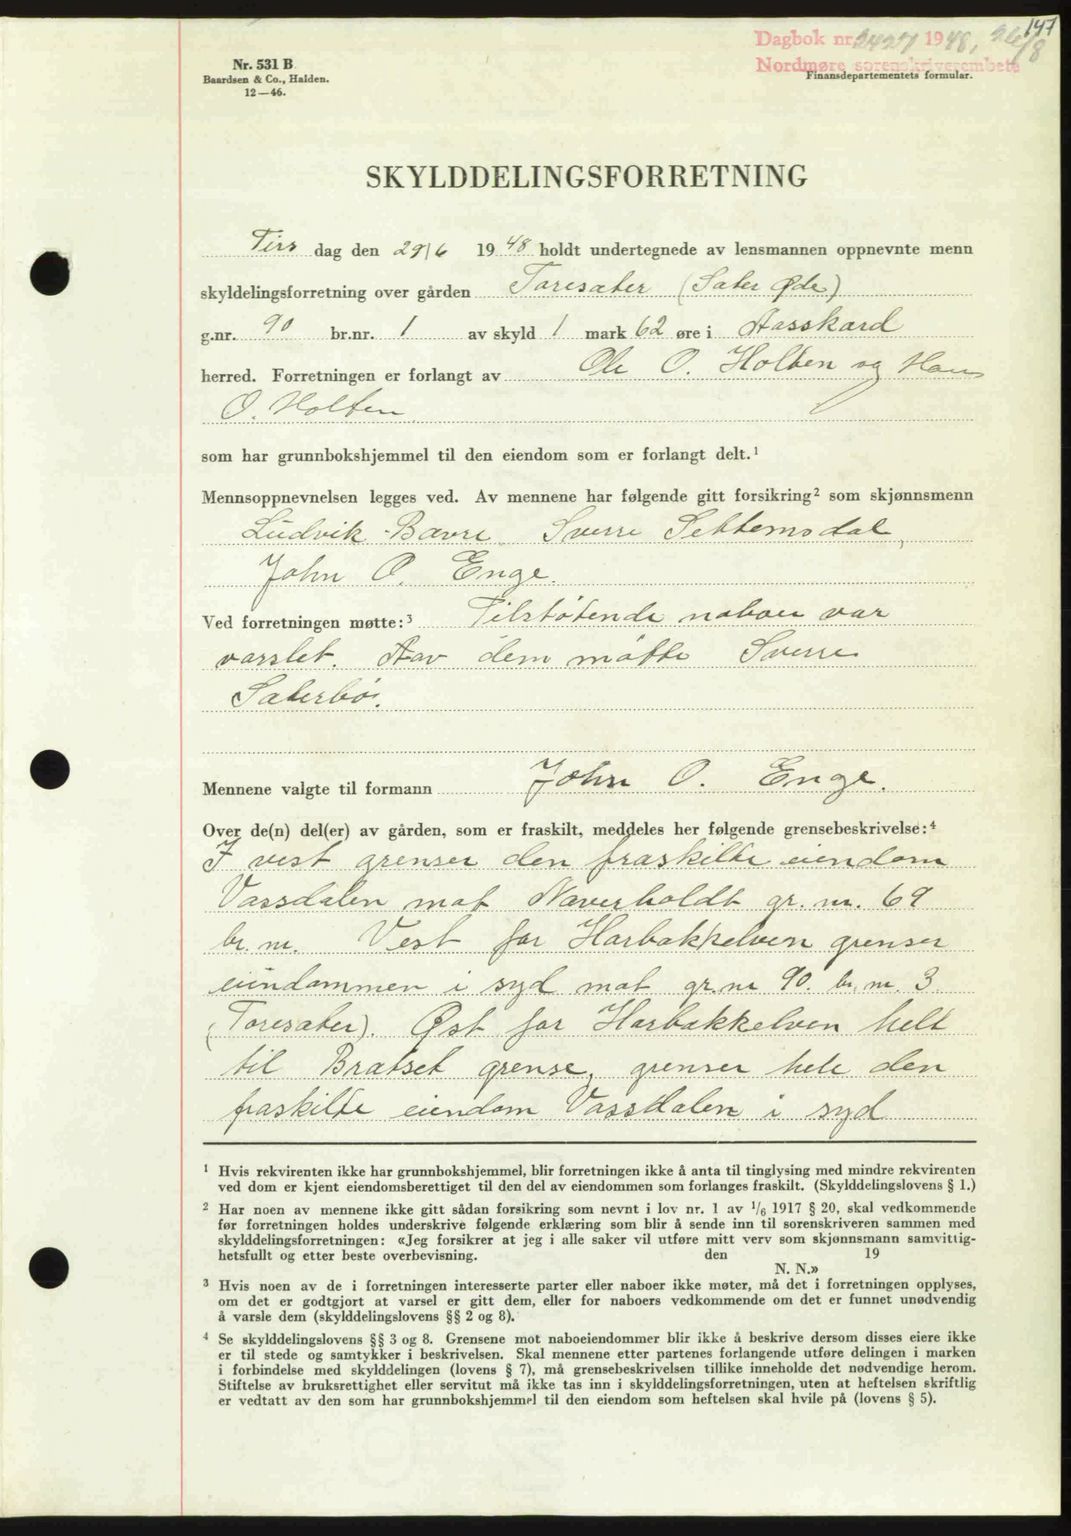 147
Dagbok nr. 2427 1948, 26/8
Nordmøre sorenskriverembete
Nr. 531 B
Baardsen & Co., Halden.
12—46.
Finansdepartementets formular.
SKYLDDELINGSFORRETNING
Tirs dag den 29/6 1948 holdt undertegnede av lensmannen oppnevnte menn
skyldelingsforretning over gården Toresæter (Sæter Øde)
g.nr. 90 br.nr. 1 av skyld 1 mark 62 øre i Aasskard
herred. Forretningen er forlangt av Ole O. Holten og Hans
O. Holten
som har grunnbokshjemmel til den eiendom som er forlangt delt.¹
Mennsoppnevnelsen legges ved. Av mennene har følgende gitt forsikring² som skjønnsmenn
Ludvik Bævre, Sverre Settemsdal,
John O. Enge.
Ved forretningen møtte:³ Tilstøtende naboer var
varslet. Aav dem møtte Sverre
Sæterbø.
Mennene valgte til formann John O. Enge.
Over de(n) del(er) av gården, som er fraskilt, meddeles her følgende grensebeskrivelse:⁴
I vest grenser den fraskilte eiendom
Vassdalen mot Naverholdt gr. nr. 69
br. nr. Vest for Harbakkelven grenser
eiendommen i syd mot gr.nr 90. br. nr. 3.
(Toresæter). Øst for Harbakkelven helt
til Brætset grense, grenser hele den
fraskilte eiendom Vassdalen i syd
¹ Hvis rekvirenten ikke har grunnbokshjemmel, blir forretningen ikke å anta til tinglysing med mindre rekvirenten
ved dom er kjent eiendomsberettiget til den del av eiendommen som forlanges fraskilt. (Skylddelingslovens § 1.)
² Har noen av mennene ikke gitt sådan forsikring som nevnt i lov nr. 1 av 1/6 1917 § 20, skal vedkommende
før forretningen holdes underskrive følgende erklæring som blir å sende inn til sorenskriveren sammen med
skylddelingsforretningen: «Jeg forsikrer at jeg i alle saker vil utføre mitt verv som skjønnsmann samvittig-
hetsfullt og etter beste overbevisning. den 19
N. N.»
³ Hvis noen av de i forretningen interesserte parter eller naboer ikke møter, må det i forretningen opplyses,
om det er godtgjort at varsel er gitt dem, eller for naboers vedkommende om det er funnet unødvendig
å varsle dem (skylddelingslovens §§ 2 og 8).
⁴ Se skylddelingslovens §§ 3 og 8. Grensene mot naboeiendommer blir ikke å beskrive dersom disses eiere ikke
er til stede og samtykker i beskrivelsen. Skal mennene etter partenes forlangende utføre delingen i marken
i forbindelse med skylddelingen (lovens § 7), må grensebeskrivelsen tillike inneholde det nødvendige herom.
Stiftelse av bruksrettighet eller servitut må ikke tas inn i skylddelingsforretningen, uten at heftelsen skriftlig
er vedtatt av den som har grunnbokshjemmel til den eiendom som heftelsen skal hvile på (lovens § 5).